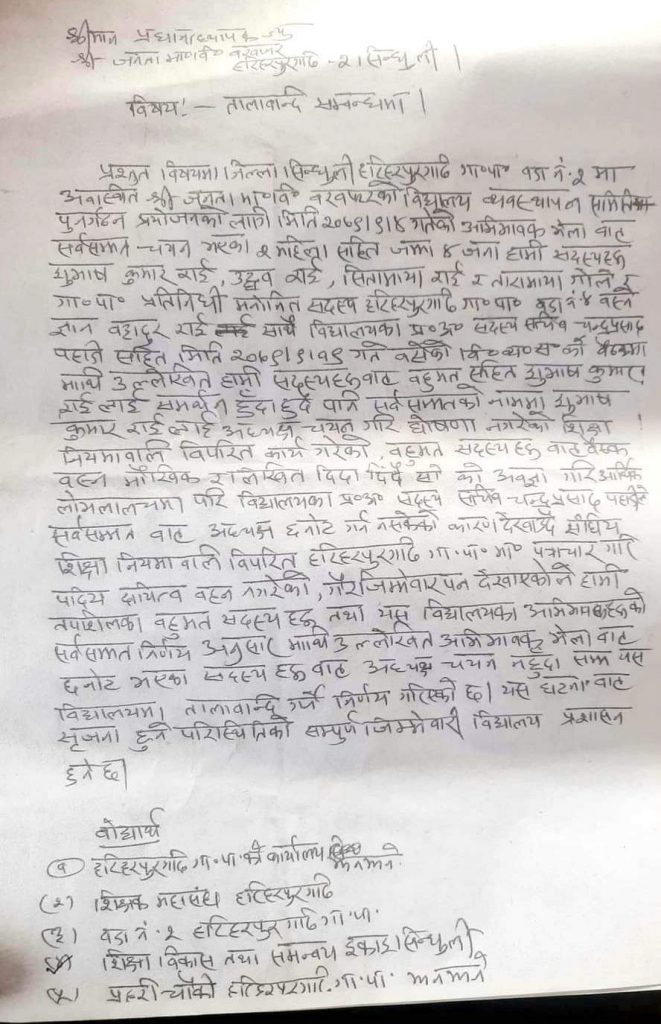 श्रीमान प्रधानाध्यापक ज्यु
श्री जनता मा०वि० वरखपर
हरिहरपुरगढि -२ सिन्धुली ।
विषय!- तालावन्दि सम्वन्धमा ।
प्रस्तुत विषयमा जिल्ला सिन्धुली हरिहरपुरगढि गा०पा० वडा नं.२ मा
अवास्थित श्री जनता मा०वि० वरखपरको विद्यालय व्यवस्थापन समिति
पुनर्गठन प्रयोजनका लागि मिति २०७९।९।४ गतेको अभिभावक भेला वाट
सर्वसम्मत चयन भएका २ महिला सहित जम्मा ४ जना हामी सदस्यहरु
सुभाष कुमार राई, उद्धव राई, सितामाया राई र तारामाया गोले र
गा०पा० प्रतिनिधी मनोनित सदस्य हरिहरपुरगढि गा०पा० वडा नं.४ वस्ने
ज्ञान वहादुर राई साथै विद्यालयका प्र०अ० सदस्य सचिव चन्द्रप्रसाद
पहाडी सहित मिति २०७९।९।१९ गते वसेको वि०व्य०स० को वैठकमा
माथि उल्लेखित हामी सदस्यहरुवाट वहुमत सहित सुभाष कुमार
राई लाई समर्थन हुँदाहुदै पनि सर्वसम्मतको नाममा सुभाष
कुमार राई लाई अध्यक्ष चयन गरि घोषणा नगरेको शिक्षा
नियमावलि विपरित कार्य गरेको, वहुमत सदस्य हरु वाट वैठक
वस्न मौखिक र लिखित दिदा दिदै सो को अवज्ञा गरि आर्थिक
लोभलालचमा परि विद्यालयका प्र०अ० सदस्य सचिव चन्द्रप्रसाद पहाडीले
सर्वसम्मत वाट अध्यक्ष छनोट गर्न नसकेको कारण देखाउँदै संघिय
शिक्षा नियमावलि विपरित हरिहरपुरगढि गा.पा. मा पत्राचार गरि
पदिय दायित्व वहन नगरेको, गैरजिम्मेवारपन देखाएकोले हामी
तपशिलका वहुमत सदस्य हरु तथा यस विद्यालयका अभिभावकहरुको
सर्वसम्मत निर्णय अनुसार माथि उल्लेखित अभिभावक भेला वाट
छनोट भएका सदस्य हरु वाट अध्यक्ष चयन नहुदा सम्म यस
विद्यालयमा तालावन्दि गर्ने निर्णय गरिएको छ। यस घटना वाट
सृजना हुने परिस्थितिको सम्पुर्ण जिम्मेवारी विद्यालय प्रशासन
हुने छ।
वोधार्थ
(१) हरिहरपुरगढि गा.पा.को कार्यालय
(२) शिक्षक महासंघ हरिहरपुरगढि
(३) वडा नं.२ हरिहरपुर गढि गा.पा.
शिक्षा विकास तथा समन्वय इकाइ सिन्धुली
(५) प्रहरी चौकी हरिहरपुरगढि गा.पा.